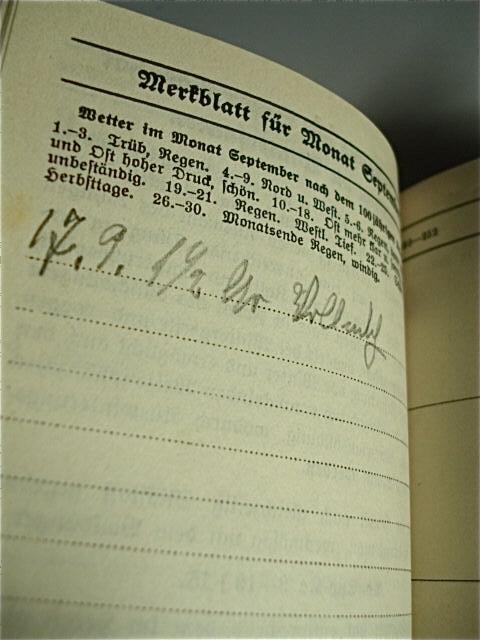 Merkblatt für Monat September
Wetter im Monat September nach dem 100jährigen
1.–3. Trüb, Regen. 4.–9. Nord u. West. 5.–6. Regen,
und Ost hoher Druck, schön. 10.–18. Ost mehr klar u.
unbeständig. 19.–21. Regen. Westl. Tief. 22.–25.
Herbsttage. 26.–30. Monatsende Regen, windig.
17. 9. 1½ Uhr